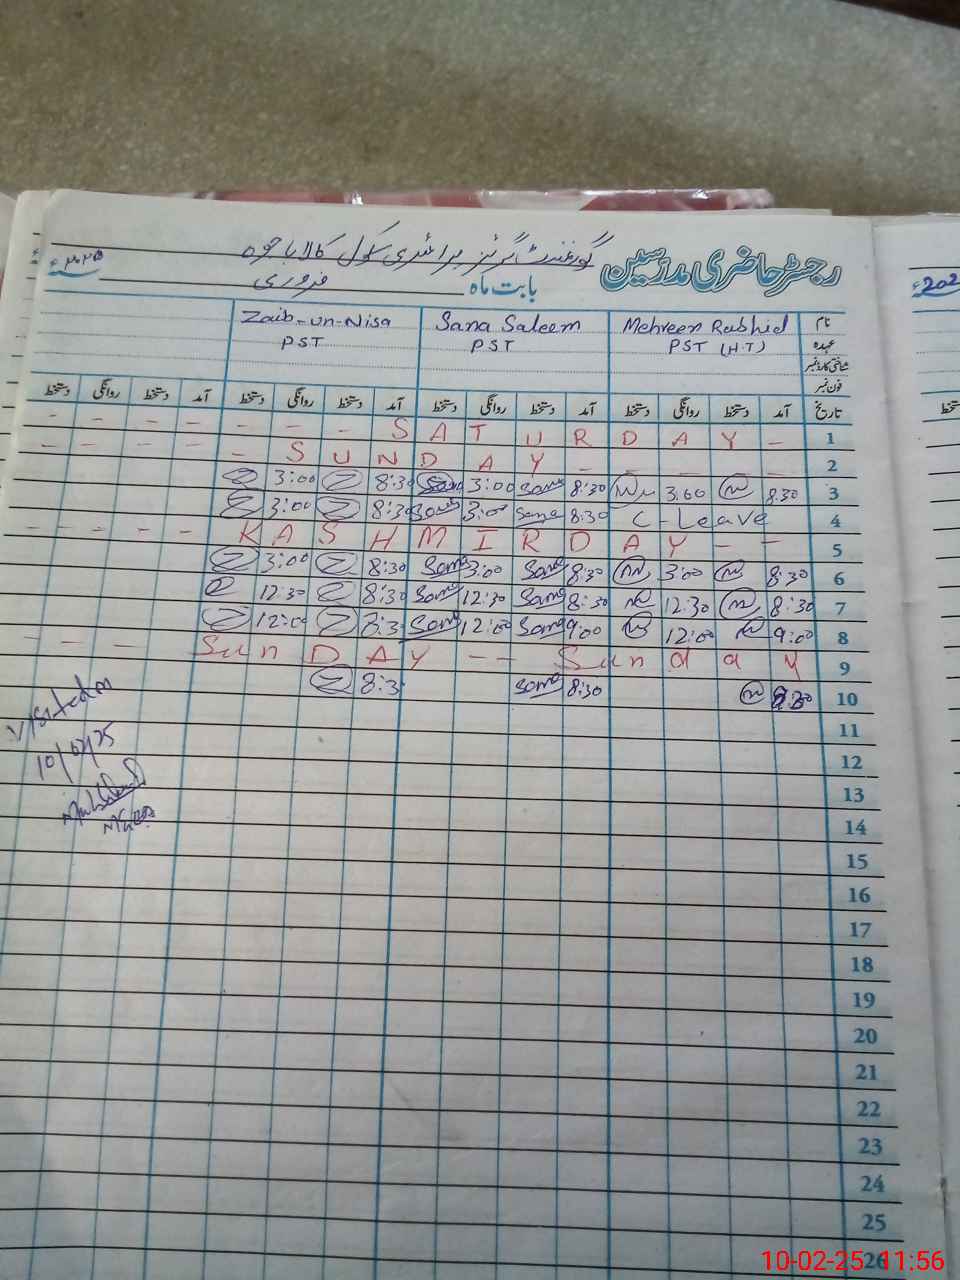 رجسٹر حاضری مدرسین گورنمنٹ گرلز پرائمری سکول کالا باجوہ
بابت ماہ فروری ۲۰۲۵ء
202
نام Mehreen Rashid Sana Saleem Zaib-un-Nisa
عہدہ PST (H.T) PST PST
شناختی کارڈ نمبر
فون نمبر
تاریخ آمد دستخط روانگی دستخط آمد دستخط روانگی دستخط آمد دستخط روانگی دستخط آمد دستخط روانگی دستخط
1 - - - - - - - S A T U R D A Y -
2 - - - - - S U N D A Y - - - - -
3 8:30 3:00 8:30 Sana 3:00 Sana 8:30 3:00
4 C-Leave 8:30 Sana 3:00 Sana 8:30 3:00
5 - - - - K A S H M I R D A Y - -
6 8:30 3:00 8:30 Sana 3:00 Sana 8:30 3:00
7 8:30 12:30 8:30 Sana 12:30 Sana 8:30 12:30
8 9:00 12:00 9:00 Sana 12:00 Sana 12:00
9 - - - Sun D A Y - - S u n d a y
10 8:30 8:30 Sana 8:3
Visited on
10/02/25
11
12
13
14
15
16
17
18
19
20
21
22
23
24
25
26
10-02-25 11:56